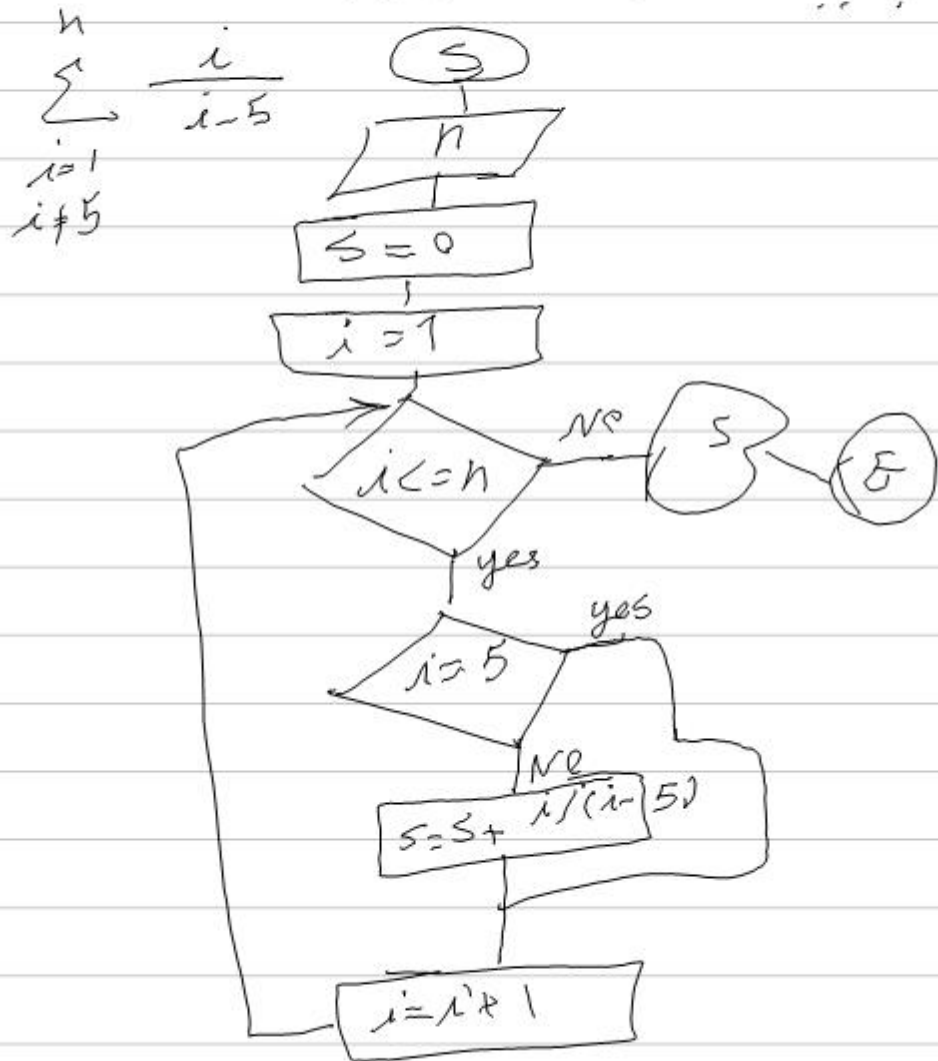 n
∑ i/(i-5)
i=1
i≠5
S
n
S = 0
i = 1
i<=n
No
S
E
yes
i=5
yes
No
S=S+ i/(i-5)
i=i+1